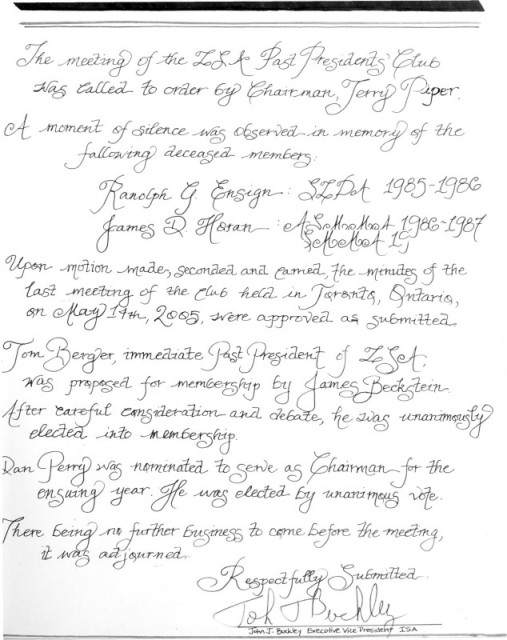 The meeting of the ISA Past Presidents' Club
was called to order by Chairman, Terry Piper.
A moment of silence was observed in memory of the
following deceased members:
Randolph G. Ensign: SIDA 1985-1986
James D. Horan: 1986-1987
Upon motion made, seconded and carried, the minutes of the
last meeting of the club held in Toronto, Ontario,
on May 17th, 2005, were approved as submitted
Tom Bergler, immediate Past President of ISA,
was proposed for membership by James Beckstein.
After careful consideration and debate, he was unanimously
elected into membership.
Dan Perry was nominated to serve as Chairman for the
ensuing year. He was elected by unanimous vote.
There being no further business to come before the meeting,
it was adjourned.
Respectfully Submitted
John J Buckley
John J. Buckley Executive Vice President ISA